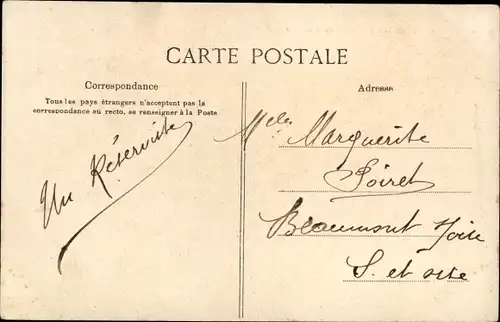 CARTE POSTALE
Correspondance
Tous les pays étrangers n'acceptent pas la
correspondance au recto, se renseigner à la Poste
Un Réserviste
Adresse
Melle Marguerite
Poiret
Beaumont
S. et oise